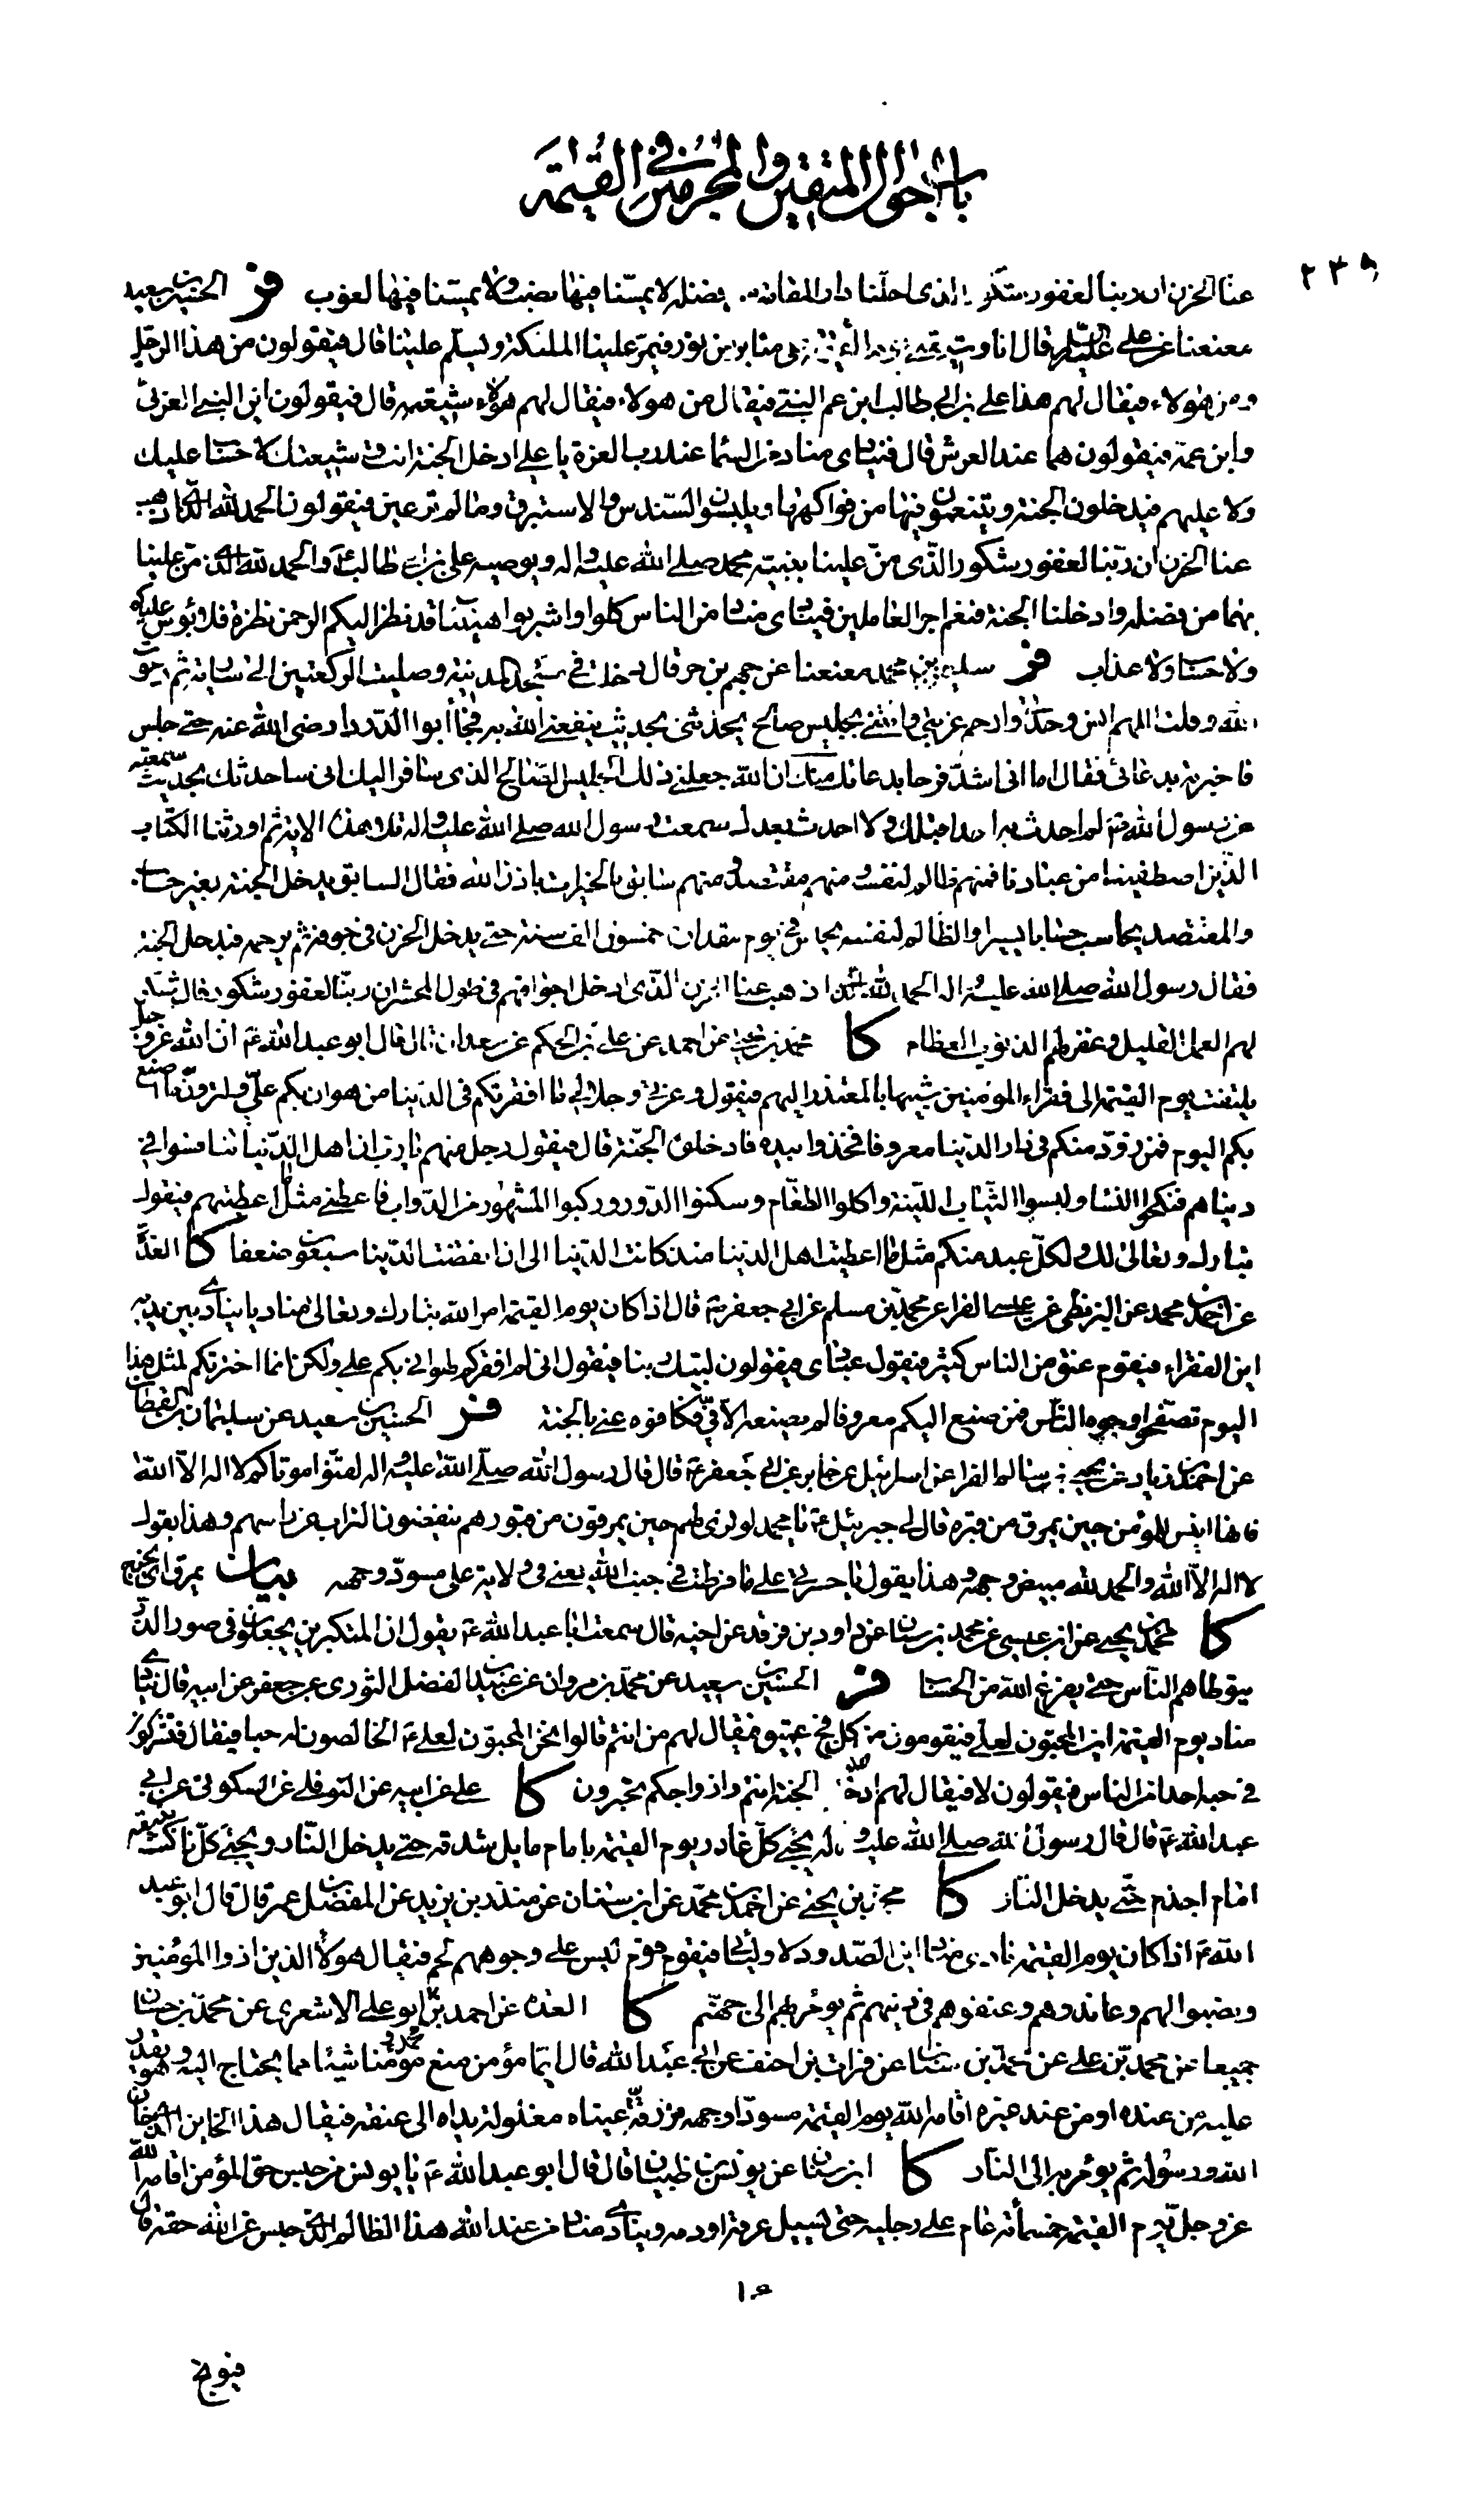 باب احوال المتقين والمجرمين في القيمة
٢٣٩
عنا الحزن ان ربنا لغفور شكور الذى احلنا دار المقامة من فضله لا يمسنا فيها نصب ولا يمسنا فيها لغوب فر الحسين بن سعيد
معنعنا عن على عليه السلام قال انا و على منابر من نور فيمر علينا الملئكة ويسلم علينا قال فيقولون من هذا الرجل
ومن هؤلاء فيقال لهم هذا على بن ابى طالب ابن عم النبى فيقال من هولاء فيقال لهم هؤلاء شيعته قال فيقولون اين النبي العربي
وابن عمه فيقولون هما عند العرش قال فينادى مناد من السما عند رب العزة يا على ادخل الجنة انت وشيعتك لا حساب عليك
ولا عليهم فيدخلون الجنة ويتنعمون فيها من فواكهها ويلبسون السندس والاستبرق وما لم تر عين فيقولون الحمد لله الذى اذهب
عنا الحزن ان ربنا لغفور شكور الذى من علينا بنبيه محمد صلى الله عليه واله وبوصيه على بن ابى طالب ع والحمد لله الذى من علينا
بهما من فضله وادخلنا الجنة فنعم اجر العاملين فينادى مناد من السماء كلوا واشربوا هنيئا قد نظر اليكم الرحمن نظرة فلا بؤس عليكم
ولا حساب ولا عذاب فر سليمن بن محمد معنعنا عن جهم بن حر قال دخلت في مسجد المدينة وصليت الركعتين الى سارية ثم دعوت
الله وقلت اللهم انس وحدتى وارحم غربتى وائتنى بجليس صالح يحدثنى بحديث ينفعنى الله به فجاء ابو الدرداء رضى الله عنه حتى جلس
فاخبرته بدعائى فقال اما انى اشد فرحا بدعائك منك ان الله جعلنى ذلك الجليس الصالح الذى ساقه اليك انى ساحدثك بحديث سمعته
عن رسول الله ص لم احدث به احدا قبلك ولا احدث بعدك سمعت رسول الله صلى الله عليه واله تلا هذه الاية ثم اورثنا الكتاب
الذين اصطفينا من عبادنا فمنهم ظالم لنفسه ومنهم مقتصد ومنهم سابق بالخيرات باذن الله فقال السابق يدخل الجنة بغير حساب
والمقتصد يحاسب حسابا يسيرا والظالم لنفسه يحبس في يوم مقداره خمسون الف سنة حتى يدخل الحزن فى جوفه ثم يرحمه فيدخل الجنة
فقال رسول الله صلى الله عليه واله الحمد لله الذى اذهب عنا الحزن الذى ادخل اجوافهم فى طول المحشر ان ربنا لغفور شكور قال شكر
لهم العمل القليل وغفر لهم الذنوب العظام كا محمد بن يحيى عن احمد عن على بن الحكم عن سعدان قال قال ابو عبد الله ع ان الله عز وجل
يلتفت يوم القيمة الى فقراء المؤمنين شبيها بالمعتذر اليهم فيقول وعزتى وجلالى ما افقرتكم فى الدنيا من هوان بكم على ولترون ما اصنع
بكم اليوم فمن زود منكم فى دار الدنيا معروفا فخذوا بيده فادخلوه الجنة قال فيقول رجل منهم يا رب ان اهل الدنيا تنافسوا في
دنياهم فنكحوا النسا ولبسوا الثياب اللينة واكلوا الطعام وسكنوا الدور وركبوا المشهور من الدواب فاعطنى مثل ما اعطيتهم فيقول
تبارك وتعالى لك ولكل عبد منكم مثل ما اعطيت اهل الدنيا منذ كانت الدنيا الى ان انقضت الدنيا سبعون ضعفا كا العدة
عن احمد بن محمد عن البزنطى عن عيسى الفرا عن محمد بن مسلم عن ابى جعفر ع قال اذا كان يوم القيمة امر الله تبارك وتعالى مناديا ينادى بين يديه
اين الفقراء فيقوم عنق من الناس كثير فيقول عبادى فيقولون لبيك ربنا فيقول انى لم افقركم لهوان بكم على ولكن انما اخترتكم لمثل هذا
اليوم تصفحوا وجوه الناس فمن صنع اليكم معروفا لم يصنعه الا فى فكافوه عنى بالجنة فر الحسين بن سعيد عن سليمان القطان
عن احمد بن زياد عن يحيى بن سالم الفرا عن اسرائيل عن جابر عن ابى جعفر ع قال قال رسول الله صلى الله عليه واله لقنوا موتاكم لا اله الا الله
فانها انيس للمؤمن حين يمرق من قبره قال لى جبرئيل ع يا محمد لو تريهم حين يمرقون من قبورهم ينفضون التراب عن راسهم وهذا يقول
لا اله الا الله والحمد لله مبيض وجهه وهذا يقول يا حسرتى على ما فرطت فى جنب الله يعنى فى ولاية على مسود وجهه بيان يمرق اى يخرج
كا محمد بن يحيى عن ابن عيسى عن محمد بن سنان عن داود بن فرقد عن اخيه قال سمعت ابا عبد الله ع يقول ان المتكبرين يجعلون فى صور الذر
يتوطاهم الناس حتى يفرغ الله من الحساب فر الحسين بن سعيد عن محمد بن مروان عن عبيد بن الفضل الثورى عن جعفر عن ابيه قال ينادى
مناد يوم القيمة اين المحبون لعلى فيقومون من كل فج عميق فيقال لهم من انتم قالوا نحن المحبون لعلى ع الخالصون له حبا فيقال فتشركون
في حبه احدا من الناس فيقولون لا فيقال لهم ادخلوا الجنة انتم وازواجكم تحبرون كا على عن ابيه عن النوفلى عن السكونى عن ابى
عبد الله ع قال قال رسول الله صلى الله عليه واله يجئ كل غادر يوم القيمة بامام مايل شدقه حتى يدخل النار ويجئ كل ناكث بيعة
امام اجذم حتى يدخل النار كا محمد بن يحيى عن احمد بن محمد عن ابن سنان عن منذر بن يزيد عن المفضل بن عمر قال قال ابو عبد
الله ع اذا كان يوم القيمة نادى مناد اين الصدود لاوليائى فيقوم قوم ليس على وجوههم لحم فيقال هولاء الذين اذوا المؤمنين
ونصبوا لهم وعاندوهم وعنفوهم فى دينهم ثم يؤمر بهم الى جهنم كا العدة عن احمد بن محمد وابو على الاشعرى عن محمد بن حسان
جميعا عن محمد بن على عن محمد بن سنان عن فرات بن احنف عن ابى عبد الله قال ايما مؤمن منع مؤمنا شيئا مما يحتاج اليه وهو يقدر
عليه من عنده او من عند غيره اقامه الله يوم القيمة مسودا وجهه مزرقة عيناه مغلولة يداه الى عنقه فيقال هذا الخاين الذى خان
الله ورسوله ثم يؤمر به الى النار كا ابن سنان عن يونس بن ظبيان قال قال ابو عبد الله ع يا يونس من حبس حق المؤمن اقامه الله
عز وجل يوم القيمة خمسمأة عام على رجليه حتى يسيل عرقه اودمه وينادى مناد من عند الله هذا الظالم الذى حبس عن الله حقه قال
فيوبخ